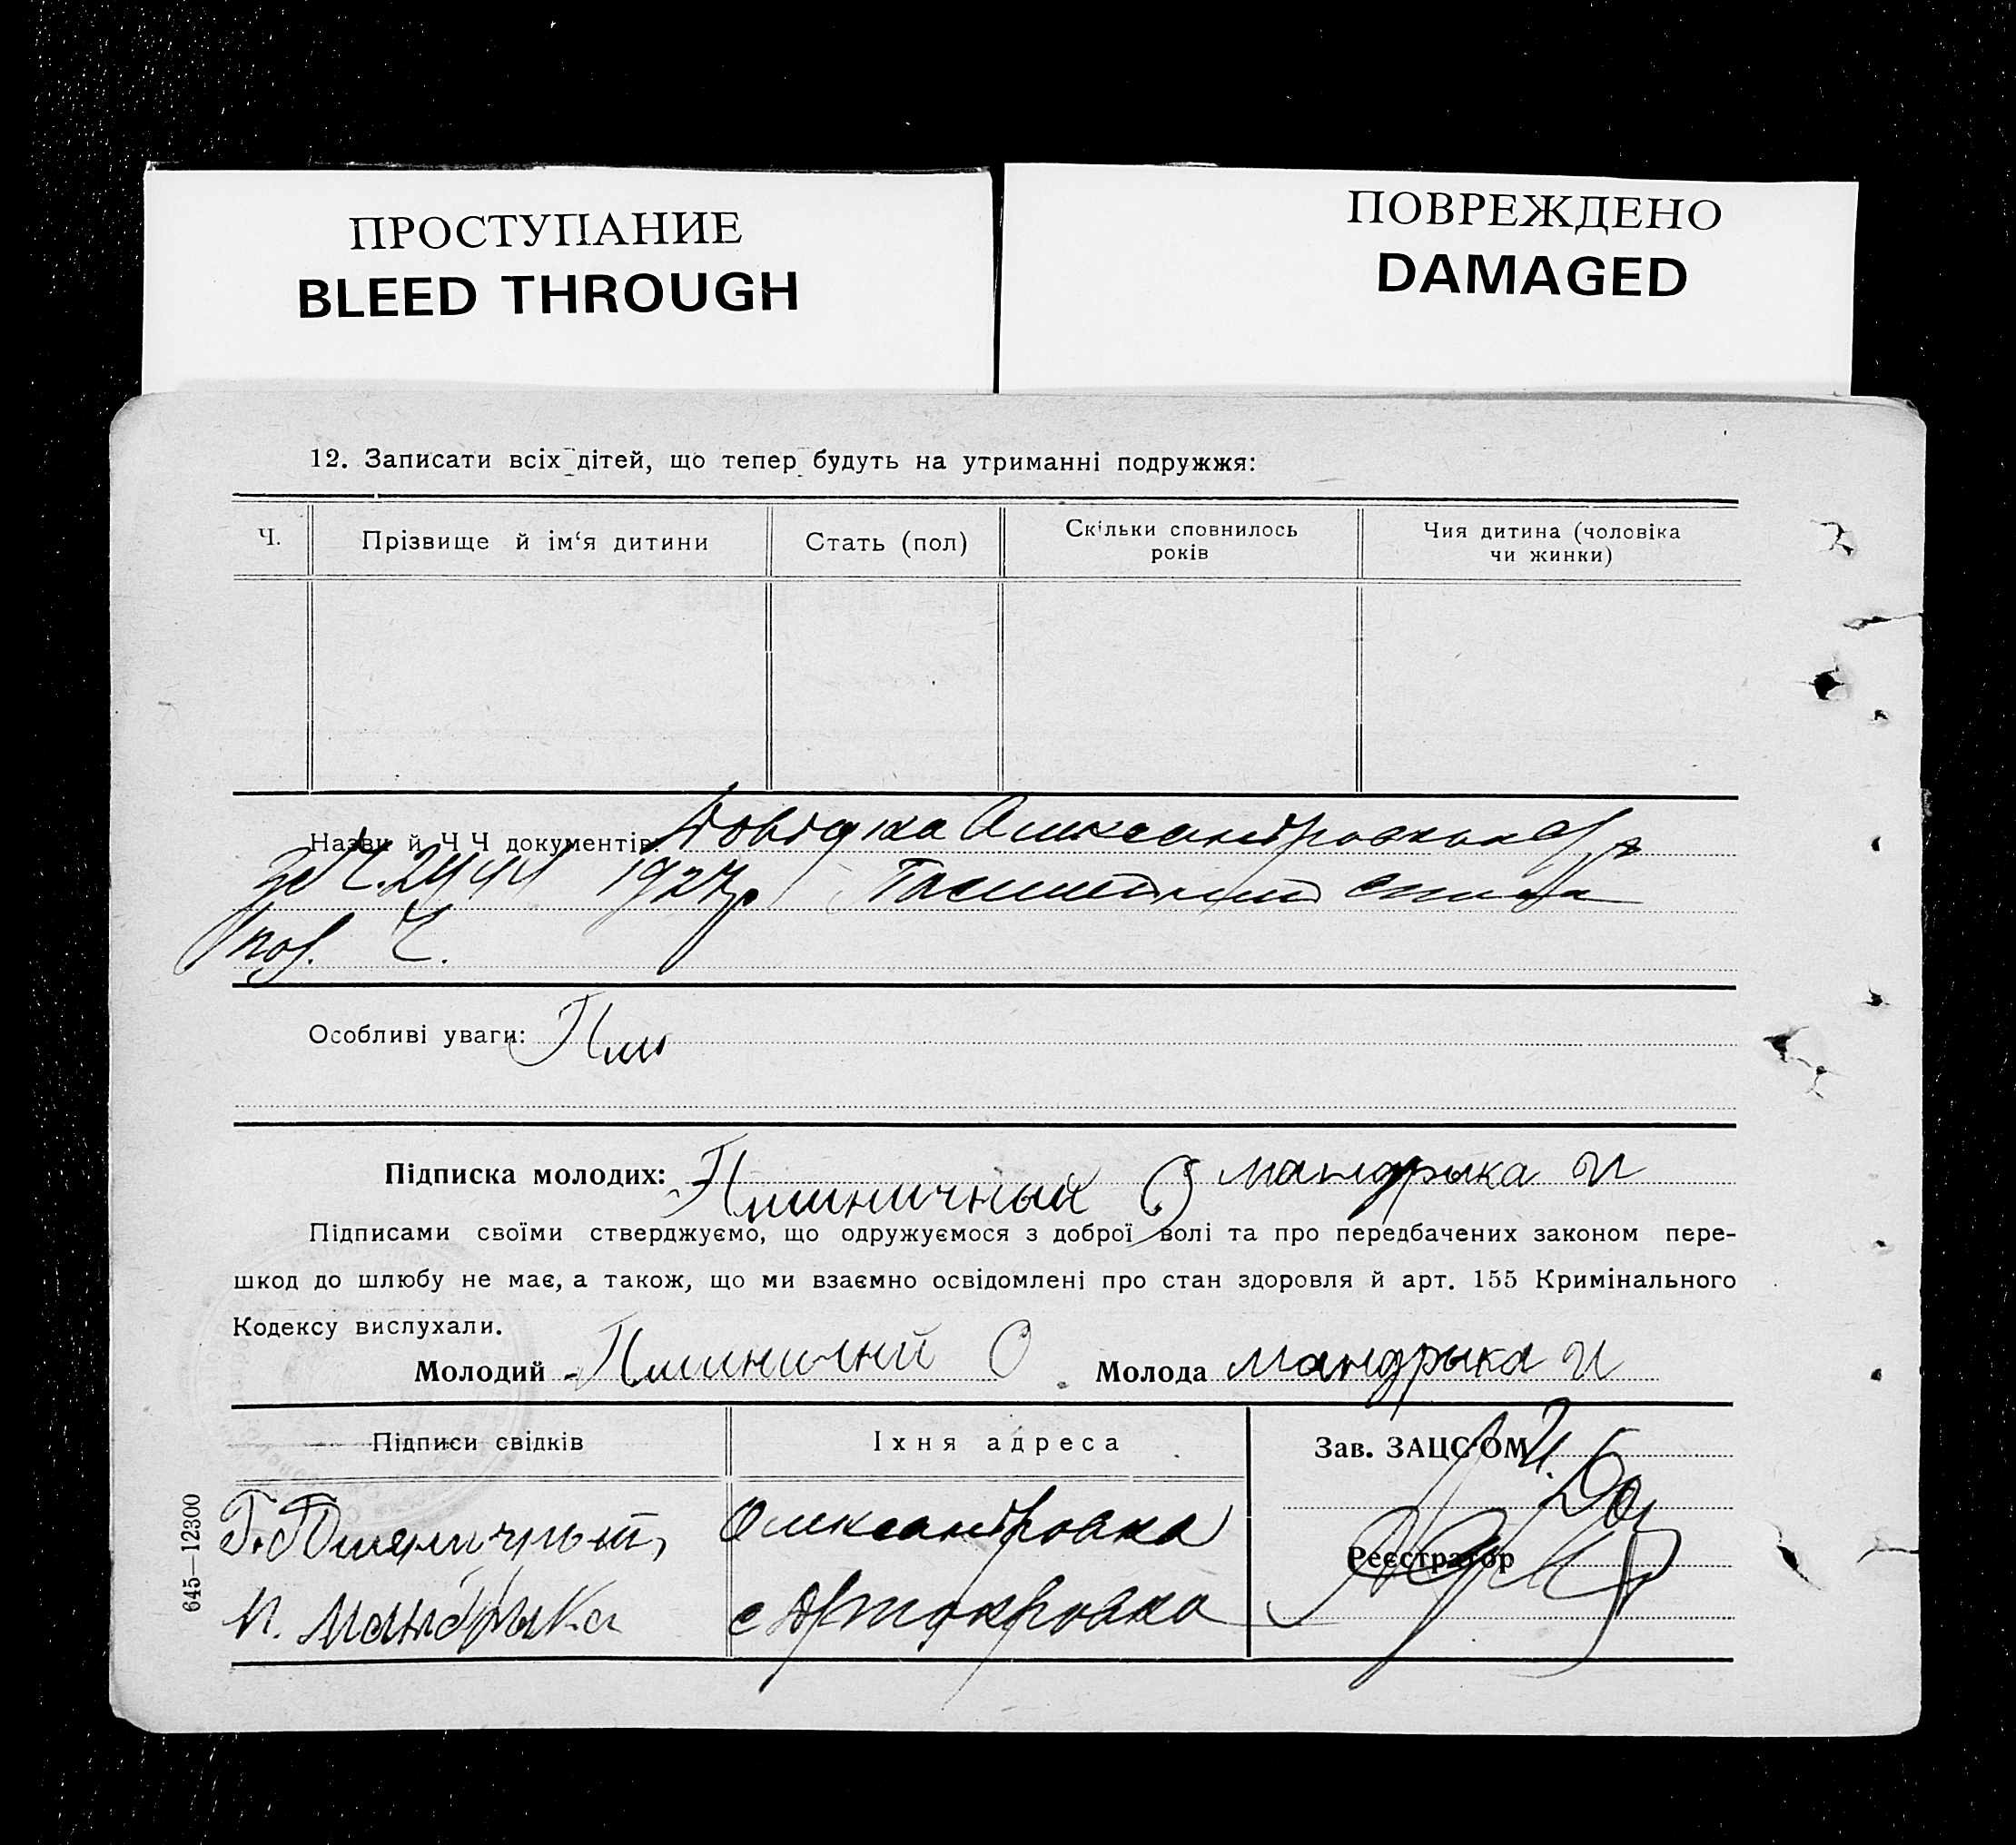 ПРОСТУПАНИЕ
BLEED THROUGH
ПОВРЕЖДЕНО
DAMAGED
12. Записати всіх дітей, що тепер будуть на утриманні подружжя:
Ч.
Прізвище й ім‘я дитини
Стать (пол)
Скільки сповнилось
років
Чия дитина (чоловіка
чи жинки)
Назви й Ч Ч документів: Довідка
за Ч. 1927р.
Ч.
Особливі уваги:
Підписка молодих: Пшиничный О Мандрыка И
Підписами своїми стверджуємо, що одружуємося з доброї волі та про передбачених законом пере-
шкод до шлюбу не має, а також, що ми взаємно освідомлені про стан здоровля й арт. 155 Кримінального
Кодексу вислухали.
Молодий Пшиничний О Молода Мандрыка И
Підписи свідків
Їхня адреса
Зав. ЗАЦС‘ОМ
Г. Пшеничный, Олександровка
Реєстратор
И. Мандрыка
645—12300